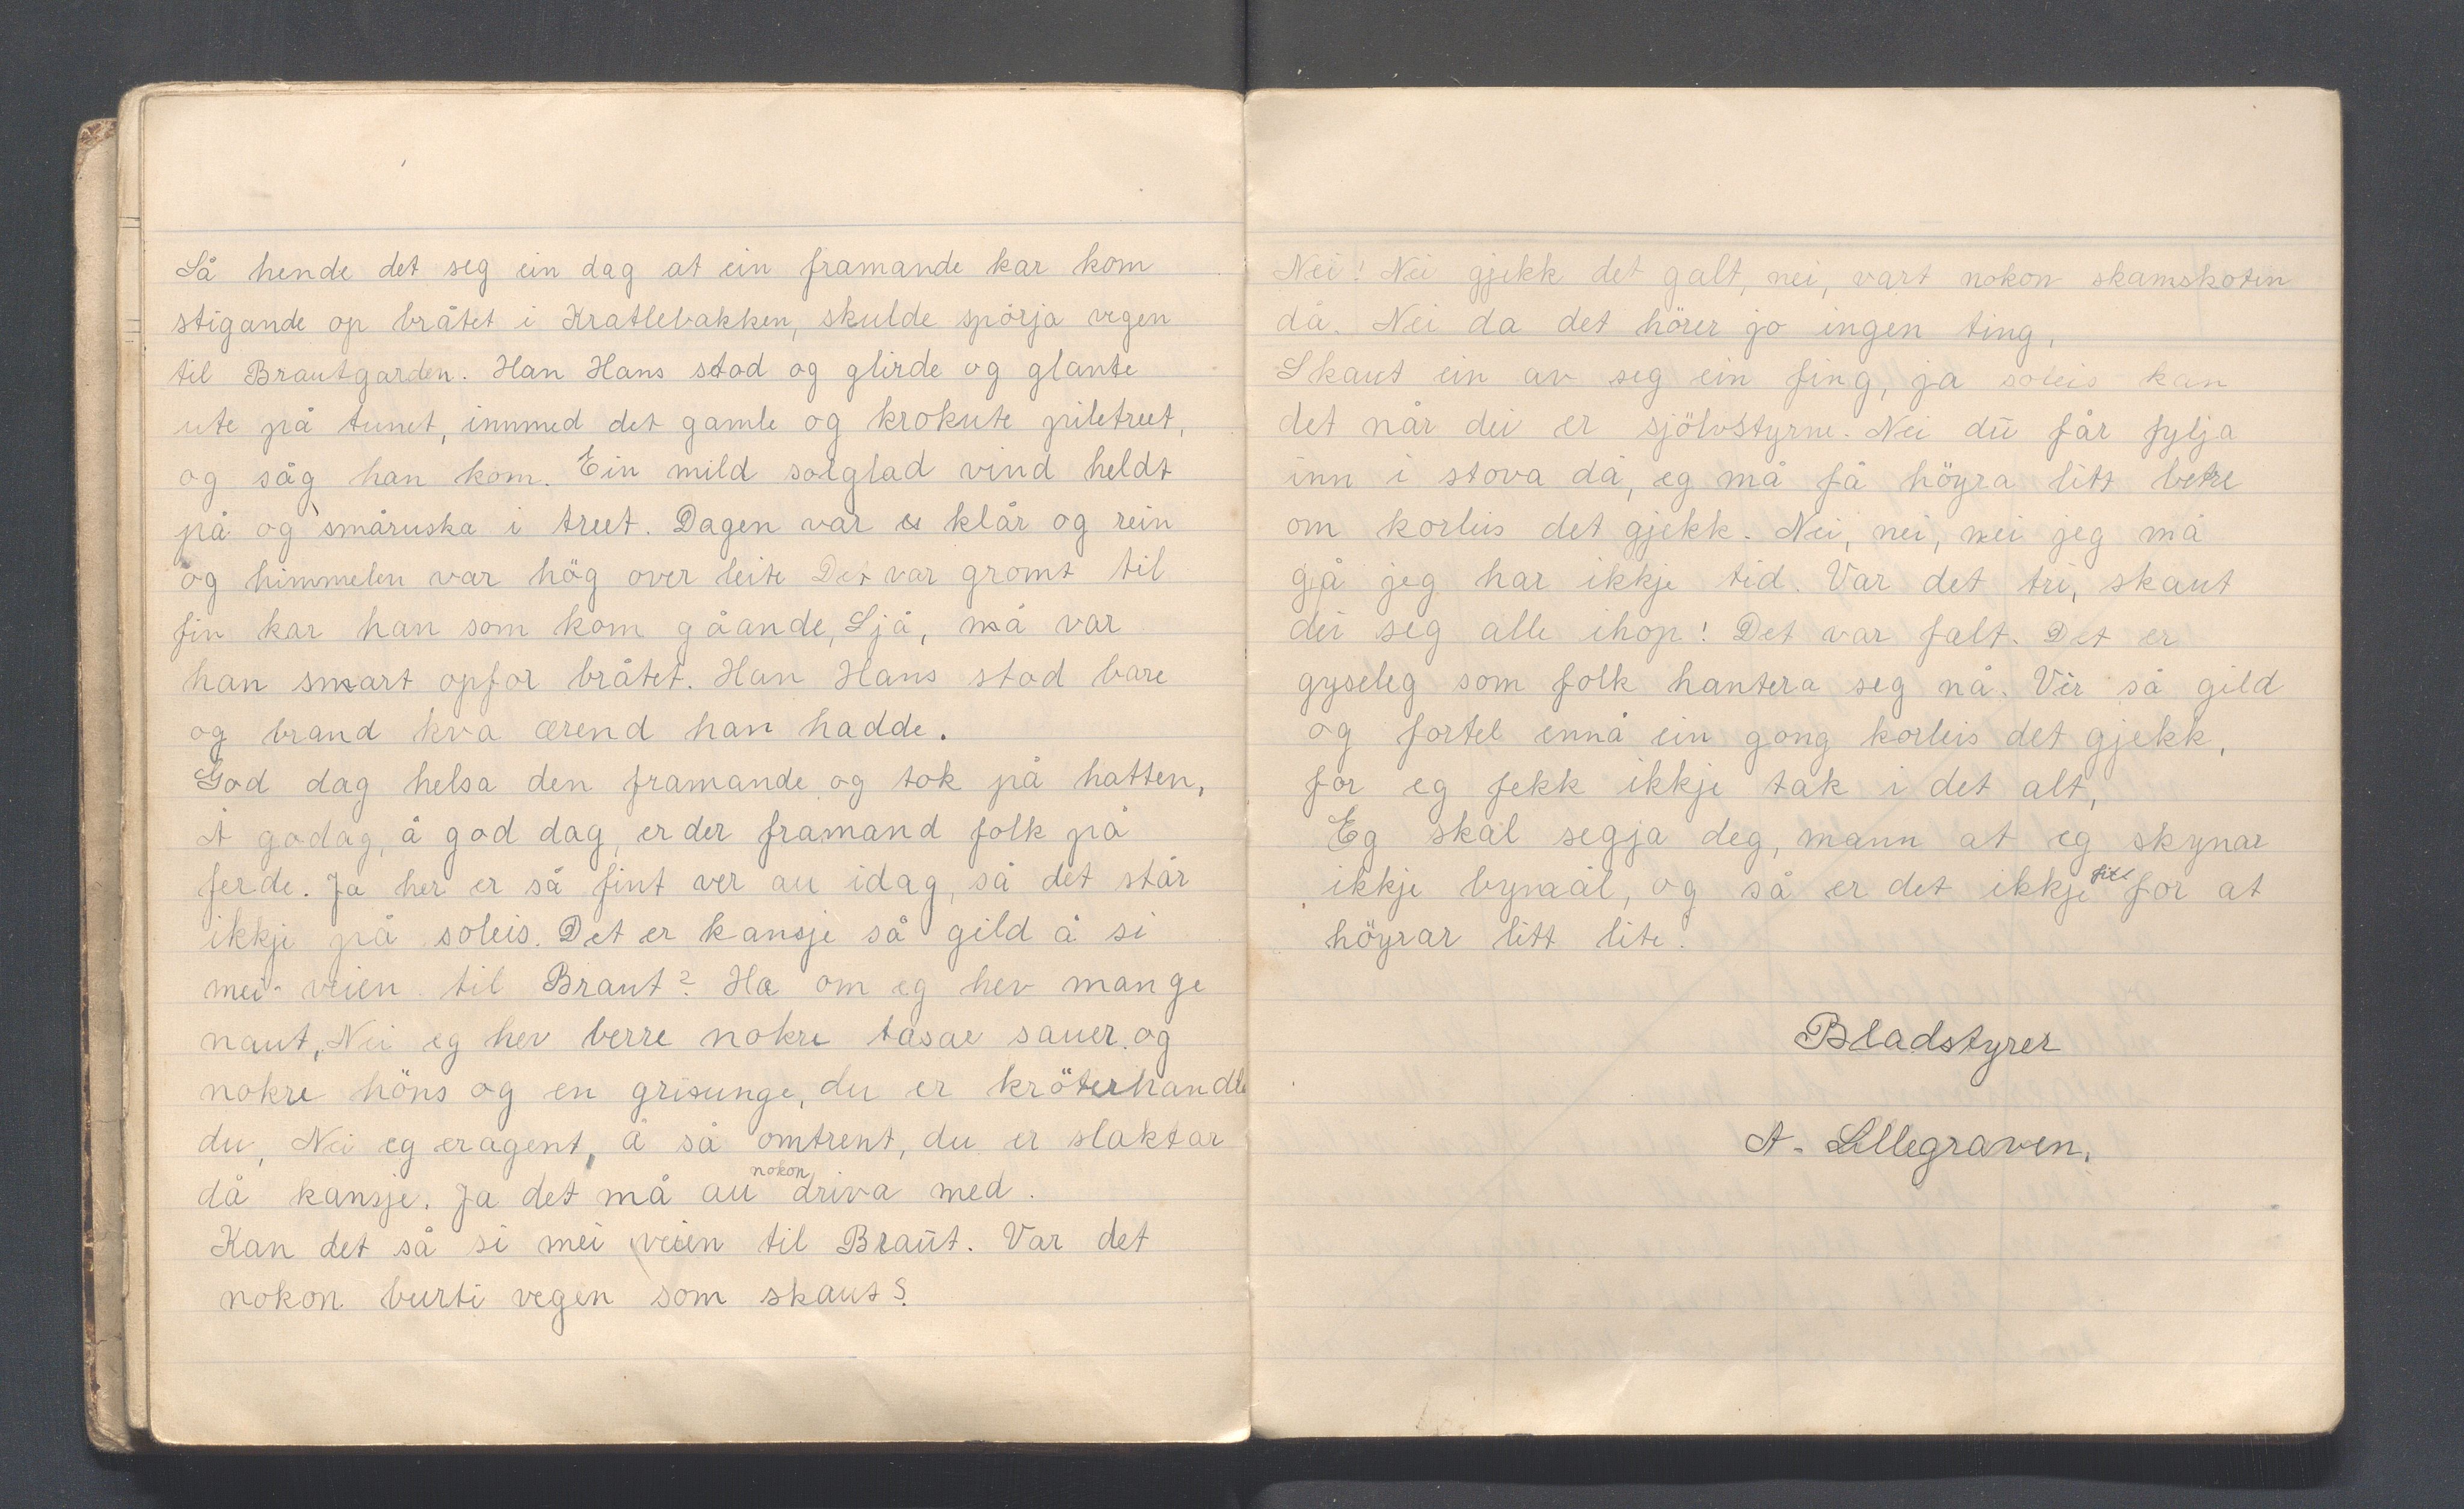 Så hende det seg ein dag at ein framande kar kom
stigande op bråtet i Kratlebakken, skulde spörja vegen
til Brautgarden. Han Hans stod og glirde og glante
ute på tunet, innmed det gamle og krokute piletreet,
og såg han kom. Ein mild solglad vind heldt
på og småruska i treet. Dagen var klår og rein
og himmelen var hög over leite Det var gromt til
fin kar han som kom gåande, Sjå, nå var
han snart opfor bråtet. Han Hans stod bare
og brand kva ærend han hadde.
God dag helsa den framande og tok på hatten,
Å godag, å god dag, er der framand folk på
ferde. Ja her er så fint ver au idag, så det står
ikkje på soleis. Det er kansje så gild å si
mei veien til Braut? Ha om eg hev mange
naut, Nei eg hev berre nokre tasar sauer og
nokre höns og en grisunge, du er kröterhandle
du, Nei eg er agent, å så omtrent, du er slaktar
då kansje. Ja det må au nokon driva med.
Kan det så si mei veien til Braut. Var det
nokon burti vegen som skaut?
Nei! Nei gjekk det galt, nei, vart nokon skamskoten
då. Nei da det hörer jo ingen ting,
Skaut ein av seg ein fing, ja soleis kan
det når dei er sjölvstyrne. Nei du får fylja
inn i stova då, eg må få höyra litt betre
om korleis det gjekk. Nei, nei, nei jeg må
gå jeg har ikkje tid. Var det tri, skaut
dei seg alle ihop! Det var falt. Det er
gyseleg som folk hantera seg nå. Ver så gild
og fortel ennå ein gong korleis det gjekk,
for eg fekk ikkje tak i det alt,
Eg skal segja deg, mann at eg skynar
ikkje bymaal, og så er det ikkje for at
höyrar litt lite.
Bladstyrer
A. Lillegraven.